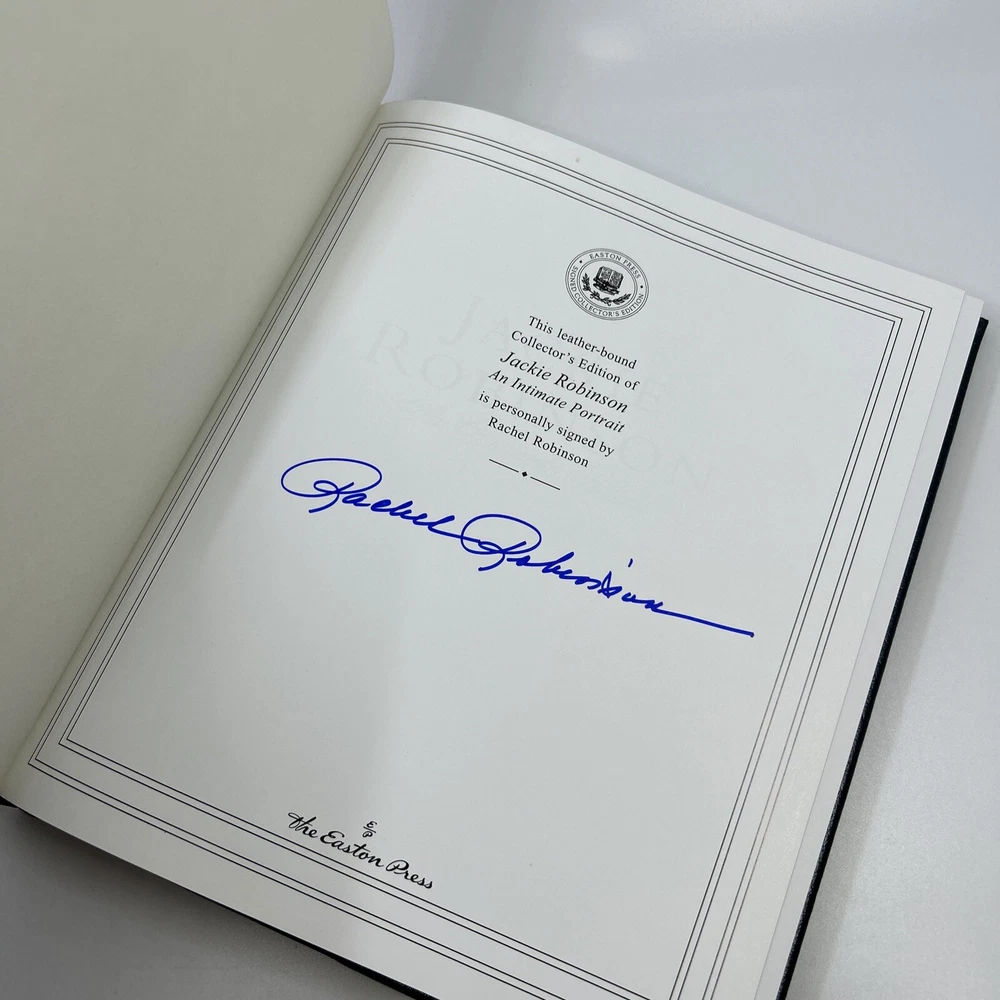 EASTON PRESS
SIGNED COLLECTOR'S EDITION
This leather-bound
Collector's Edition of
Jackie Robinson
An Intimate Portrait
is personally signed by
Rachel Robinson
Rachel Robinson
E/P
The Easton Press